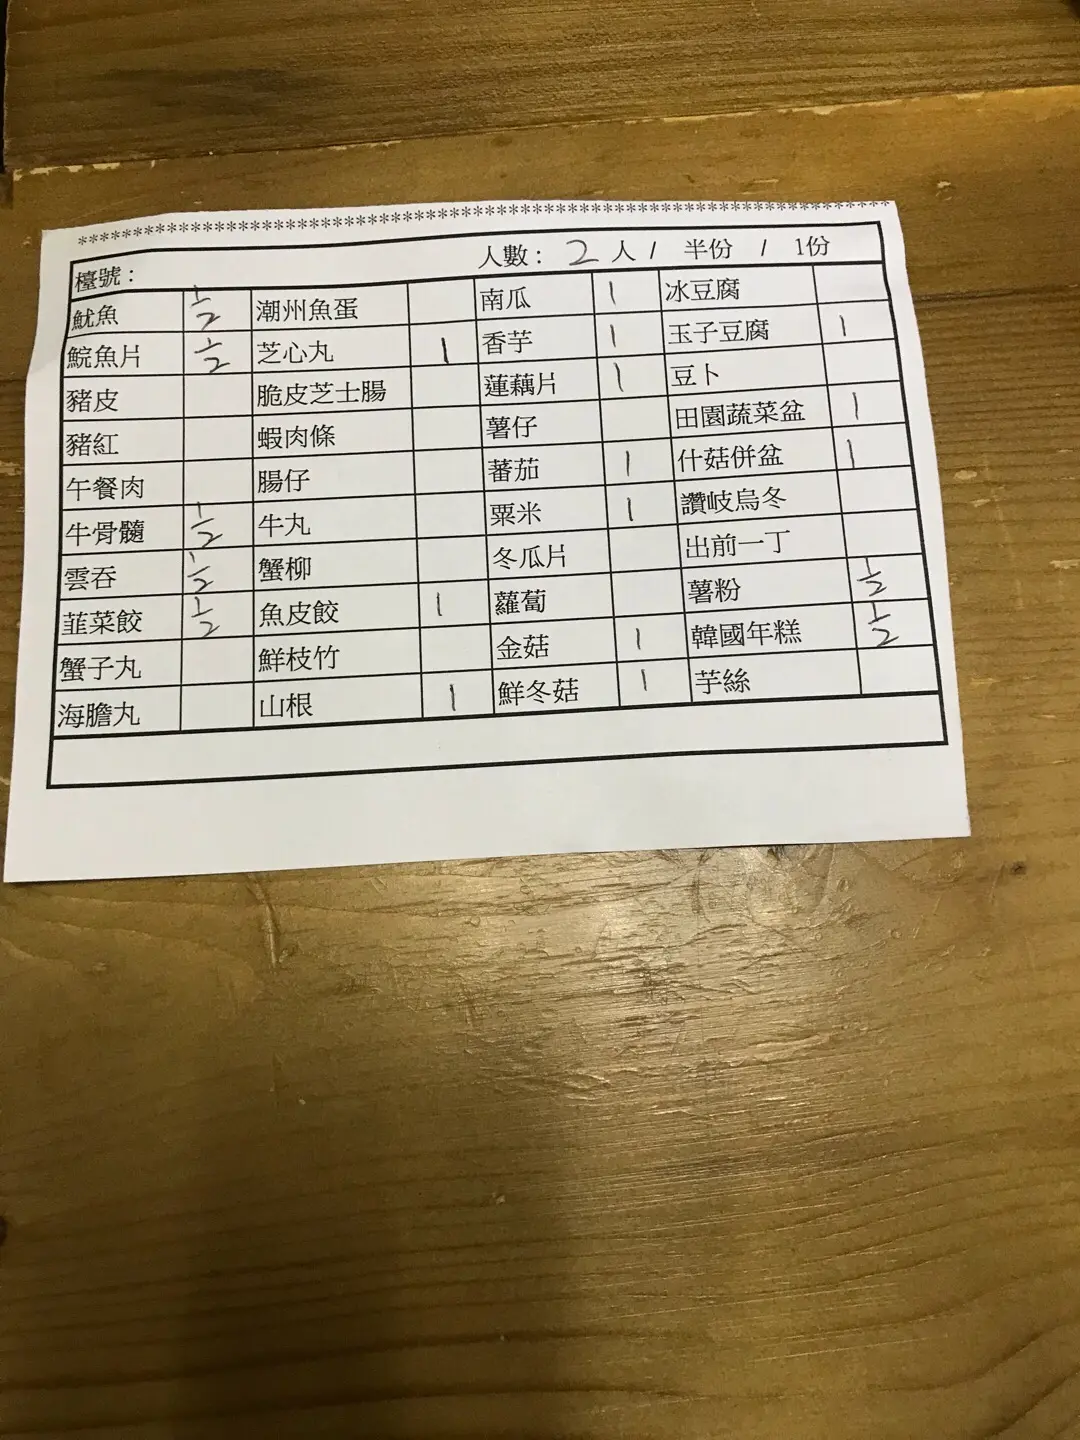 ****************************************************************************************
檯號： 人數： 2 人 / 半份 / 1份
魷魚 1/2 潮州魚蛋 南瓜 1 冰豆腐
鯇魚片 1/2 芝心丸 1 香芋 1 玉子豆腐 1
豬皮 脆皮芝士腸 蓮藕片 1 豆卜
豬紅 蝦肉條 薯仔 田園蔬菜盆 1
午餐肉 腸仔 蕃茄 1 什菇併盆 1
牛骨髓 1/2 牛丸 粟米 1 讚岐烏冬
雲吞 1/2 蟹柳 冬瓜片 出前一丁
韮菜餃 1/2 魚皮餃 1 蘿蔔 薯粉 1/2
蟹子丸 鮮枝竹 金菇 1 韓國年糕 1/2
海膽丸 山根 1 鮮冬菇 1 芋絲